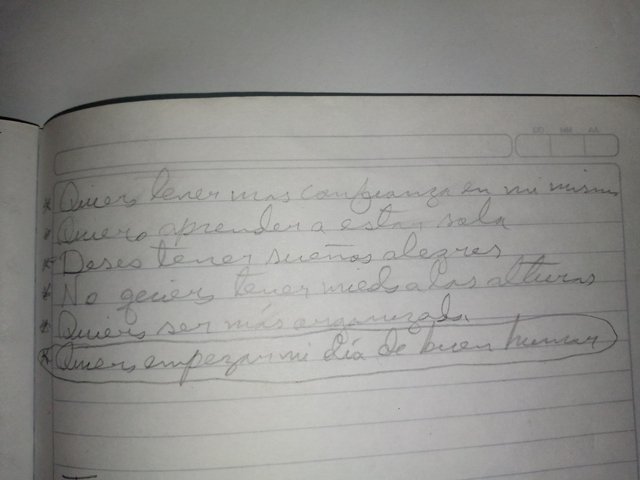 DD MM AA
* Quiero tener mas confianza en mi misma
* Quiero aprender a estar sola
* Deseo tener sueños alegres
* No quiero tener miedo a las alturas
* Quiero ser más organizada
* Quiero empezar mi día de buen humor